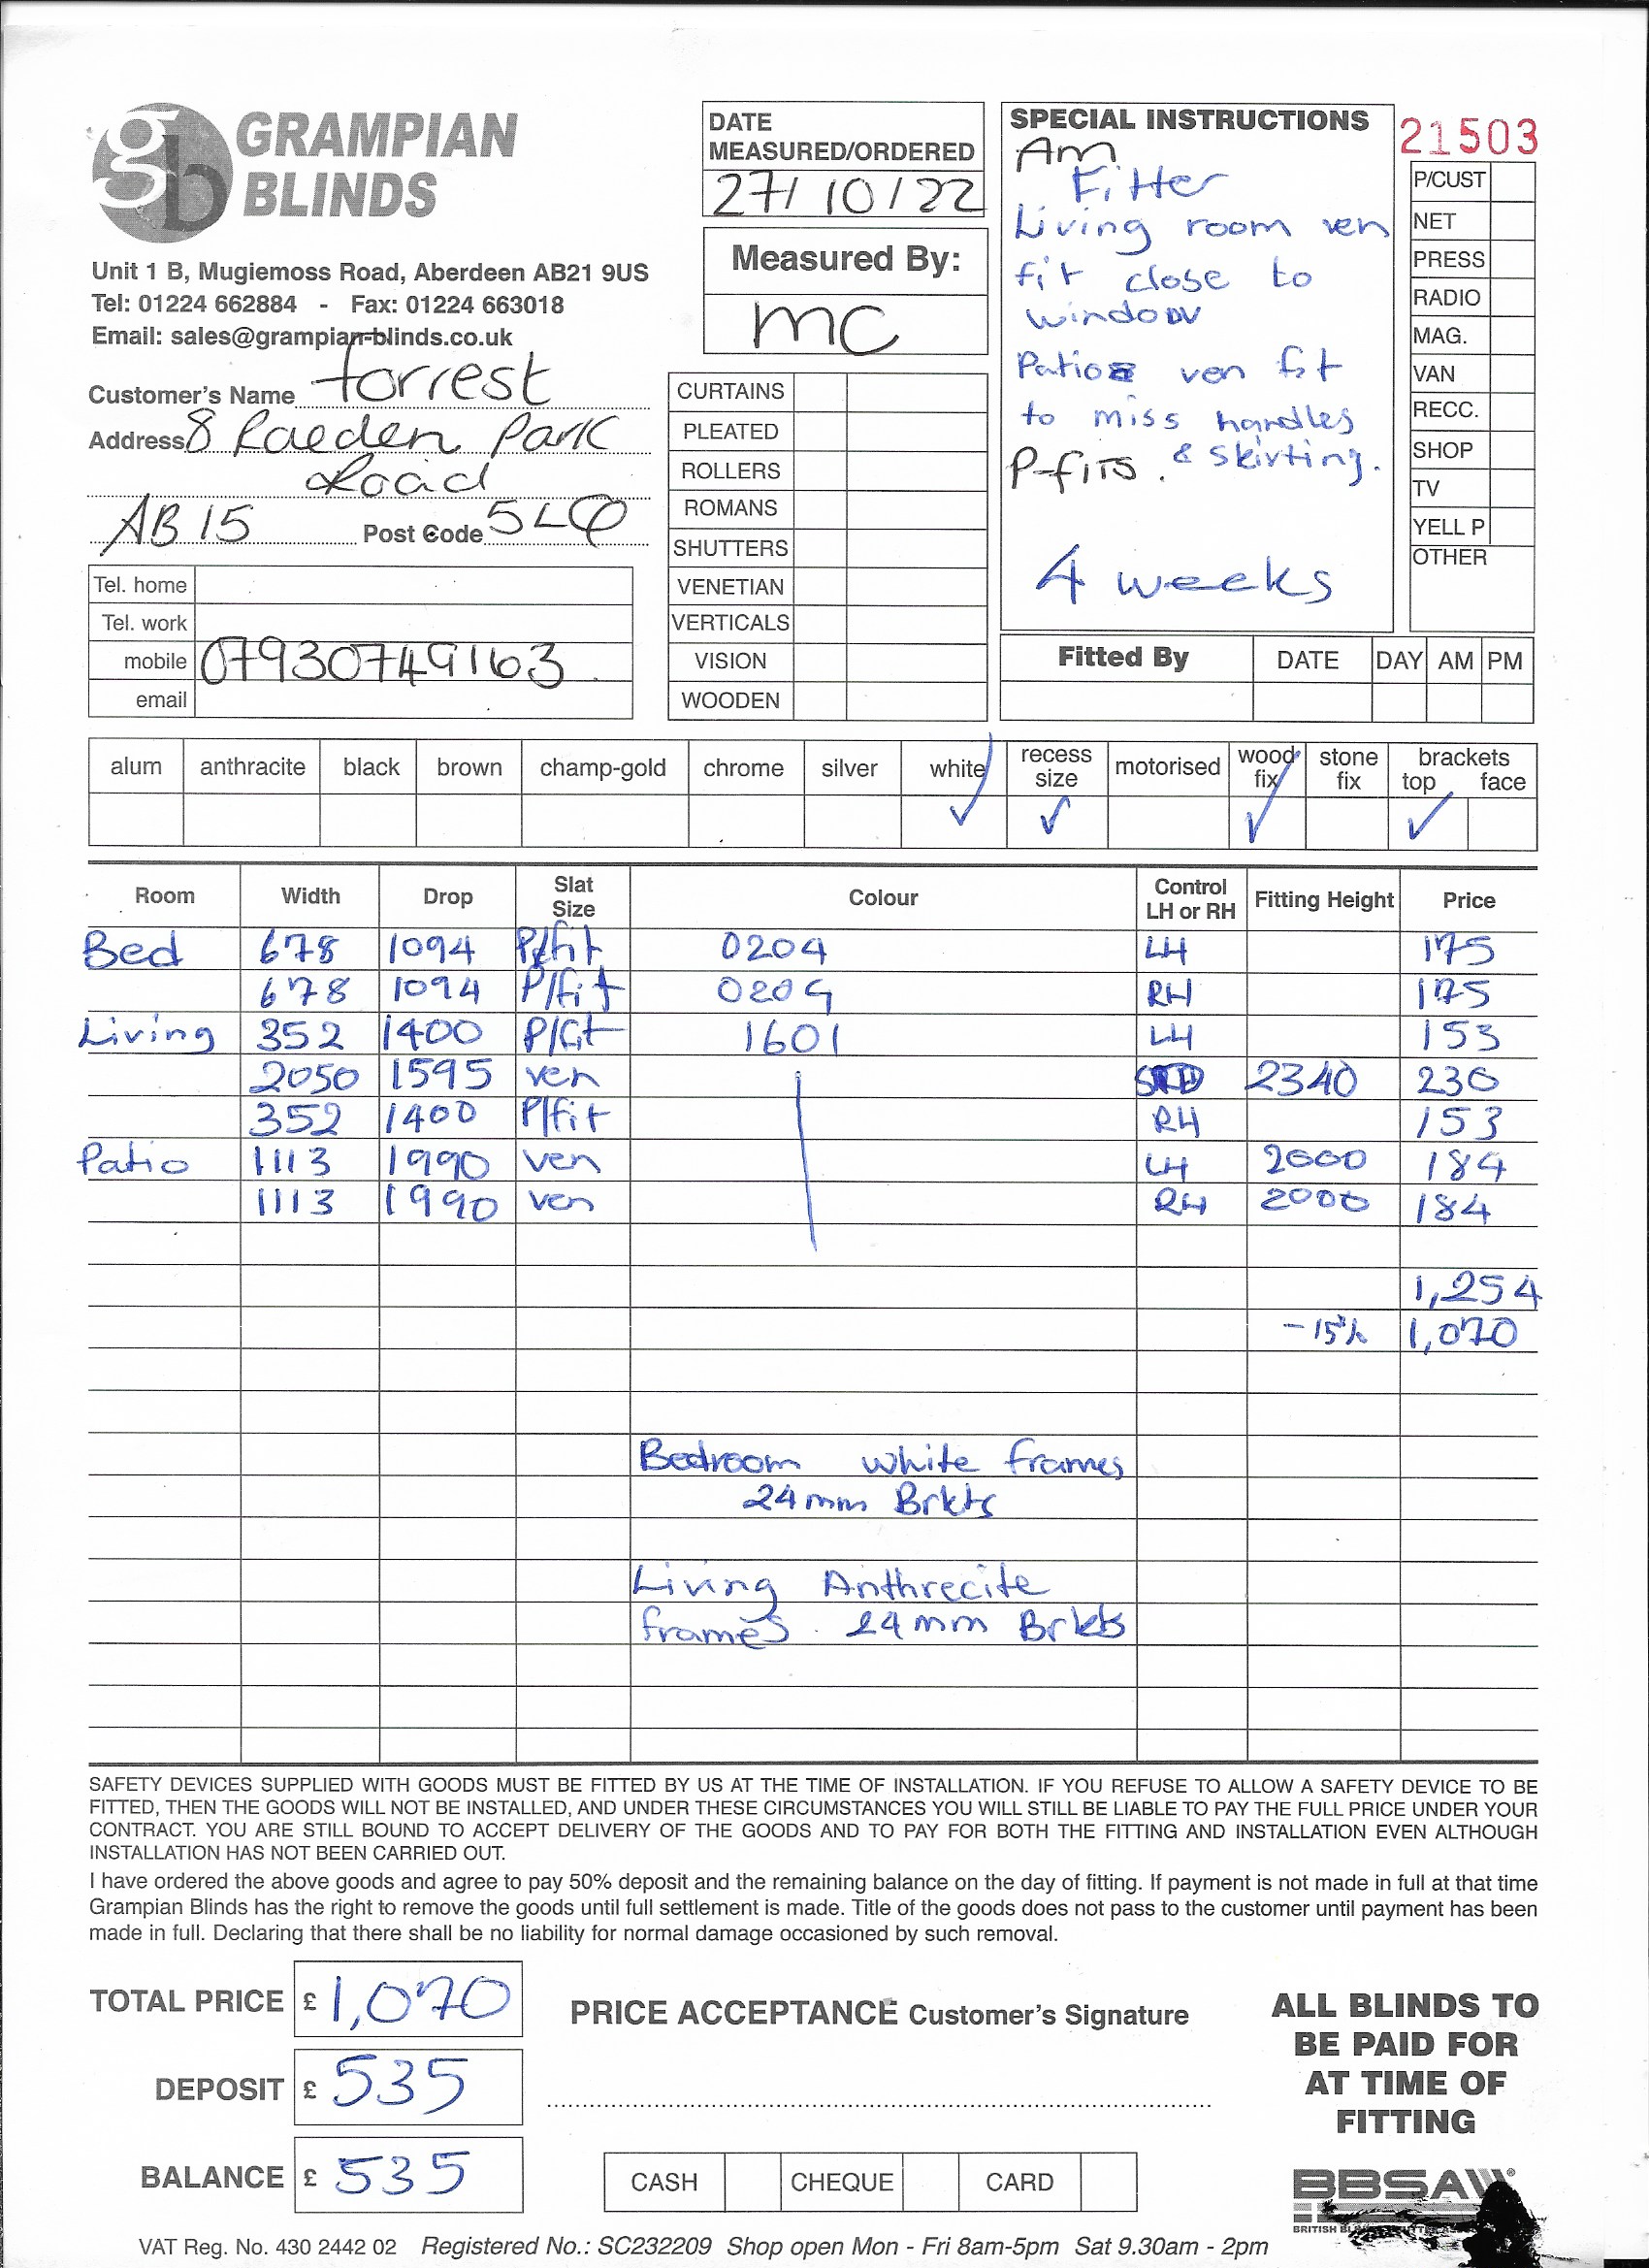 GRAMPIAN
BLINDS
Unit 1 B, Mugiemoss Road, Aberdeen AB21 9US
Tel: 01224 662884 - Fax: 01224 663018
Email: sales@grampian-blinds.co.uk
Customer's Name Forrest
Address 8 Raeden Park
Road
AB15 Post Code 5LQ
Tel. home
Tel. work
mobile 07930749163
email
DATE
MEASURED/ORDERED
27/10/22
Measured By:
MC
CURTAINS
PLEATED
ROLLERS
ROMANS
SHUTTERS
VENETIAN
VERTICALS
VISION
WOODEN
SPECIAL INSTRUCTIONS
Am
Fitter
Living room ven
fit close to
window
Patio ven fit
to miss handles
& skirting.
P-fits.
4 weeks
21503
P/CUST
NET
PRESS
RADIO
MAG.
VAN
RECC.
SHOP
TV
YELL P
OTHER
Fitted By DATE DAY AM PM
alum anthracite black brown champ-gold chrome silver white recess size motorised wood fix stone fix brackets top face
✓ ✓ ✓ ✓
Room Width Drop Slat Size Colour Control LH or RH Fitting Height Price
Bed 678 1094 P/fit 0204 LH 175
678 1094 P/fit 0204 RH 175
Living 352 1400 P/fit 1601 LH 153
2050 1595 ven STD 2340 230
352 1400 P/fit RH 153
Patio 1113 1990 ven LH 2000 184
1113 1990 ven RH 2000 184
1,254
-15% 1,070
Bedroom white frames
24mm Brkts
Living Anthrecite
frames 24mm Brkts
SAFETY DEVICES SUPPLIED WITH GOODS MUST BE FITTED BY US AT THE TIME OF INSTALLATION. IF YOU REFUSE TO ALLOW A SAFETY DEVICE TO BE
FITTED, THEN THE GOODS WILL NOT BE INSTALLED, AND UNDER THESE CIRCUMSTANCES YOU WILL STILL BE LIABLE TO PAY THE FULL PRICE UNDER YOUR
CONTRACT. YOU ARE STILL BOUND TO ACCEPT DELIVERY OF THE GOODS AND TO PAY FOR BOTH THE FITTING AND INSTALLATION EVEN ALTHOUGH
INSTALLATION HAS NOT BEEN CARRIED OUT.
I have ordered the above goods and agree to pay 50% deposit and the remaining balance on the day of fitting. If payment is not made in full at that time
Grampian Blinds has the right to remove the goods until full settlement is made. Title of the goods does not pass to the customer until payment has been
made in full. Declaring that there shall be no liability for normal damage occasioned by such removal.
TOTAL PRICE £ 1,070
DEPOSIT £ 535
BALANCE £ 535
PRICE ACCEPTANCE Customer's Signature
CASH CHEQUE CARD
ALL BLINDS TO
BE PAID FOR
AT TIME OF
FITTING
BBSA
BRITISH
VAT Reg. No. 430 2442 02 Registered No.: SC232209 Shop open Mon - Fri 8am-5pm Sat 9.30am - 2pm